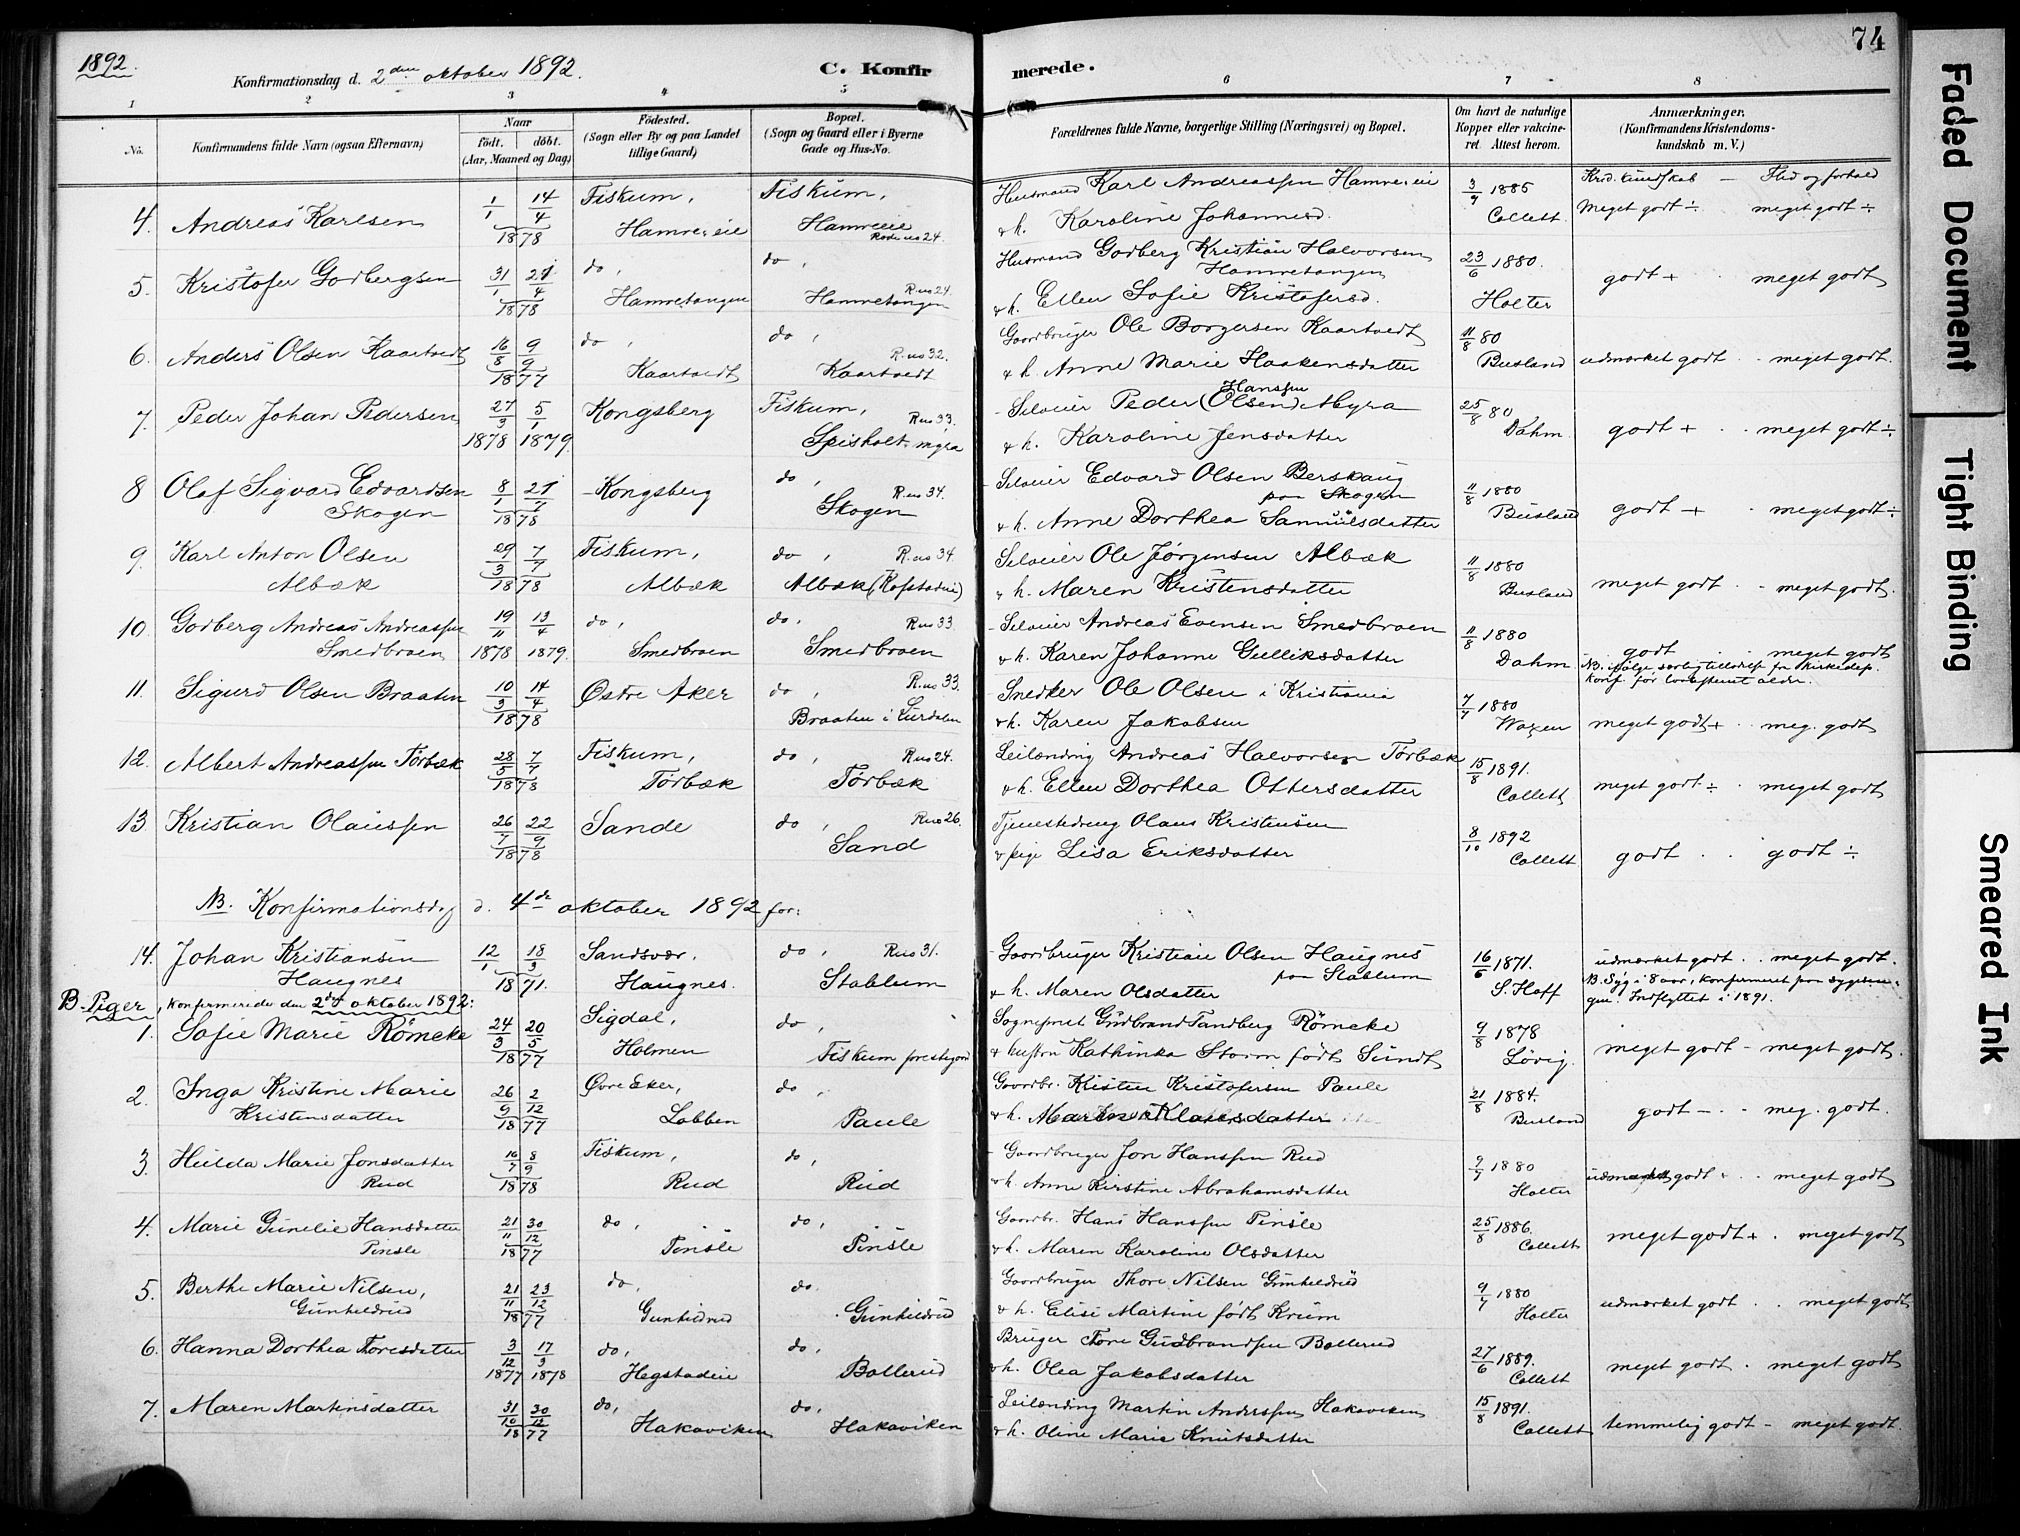 1892.
Konfirmationsdag d. 2den oktober 1892.
C. Konfir
merede.
74
1 2 3 4 5 6 7 8
No.
Konfirmandens fulde Navn (ogsaa Efternavn)
Naar
født. døbt.
(Aar, Maaned og Dag)
Fødested.
(Sogn eller By og paa Landet
tillige Gaard)
Bopæl.
(Sogn og Gaard eller i Byerne
Gade og Hus-No.
Forældrenes fulde Navne, borgerlige Stilling (Næringsvei) og Bopæl.
Om havt de naturlige
Kopper eller vakcine-
ret. Attest herom.
Anmærkninger.
(Konfirmandens Kristendoms-
kundskab m. V.)
Krd. kundskab — Flid og forhold
4. Andreas Karlsen 1/1 14/4 1878 Fiskum, Hamre, eie Fiskum, Hamreeie Rode no 24.
Husmand Karl Andreassen Hamre, eie
& h. Karoline Johannesd. 1885 Collett. Meget godt ÷ meget godt ÷
5. Kristofer Godbergsen 31/1 21/4 1878 do, Hamretangen do, R. no 24. Hamretangen
Husmand Godberg Kristian Halvorsen
Hamretangen
& h. Ellen Sofie Kristofersd. 23/6 1880. Holter godt + meget godt
6. Anders Olsen Kaartvedt 16/8 9/9 1877 do, Kaartvedt do, R. no 32. Kaartvedt
Gaardbruger Ole Borgersen Kaartvedt
& h. Anne Marie Haakensdatter 11/8 80 Busland udmærket godt . - meget godt.
7. Peder Johan Pedersen 27/3 1878 5/1 1879. Kongsberg Fiskum, R no 33. Spisholt, myra
Hanssen
Selveier Peder (Olsen) Myra
& h. Karoline Jensdatter 25/8 80 Dahm. godt + . - meget godt ÷
8 Olaf Sigvard Edvardsen 8/1 21/7 1878 Kongsberg do, R. no 34. Skogen
Skogen
Selveier Edvard Olsen Berskaug
paa Skogen
& h. Anne Dorthea Samuelsdatter 11/8 1880 Busland godt + - meget godt ÷
9. Karl Anton Olsen 29/3 7/7 1878 Fiskum, Albæk do, R. no 34. Albæk (Kofstadeie)
Albæk
Selveier Ole Jørgensen Albæk
& h. Maren Kristensdatter 11/8 1880 Busland meget godt . - meget godt.
10. Godberg Andreas Andreassen 19/11 1878 13/4 1879. do, Smedbroen do, R no 33. Smedbroen
Smedbroen
Selveier Andreas Evensen Smedbroen
& h. Karen Johanne Gulliksdatter 11/8 1880 Dahm. godt . meget godt
NB. ifølge særlig tilladelse fra Kirkedep.
konf. før lovbestemt alder.
11. Sigurd Olsen Braaten 10/3 14/4 1878 Østre Aker do, R. no 33. Braaten i Lurdalen
Snedker Ole Olsen i Kristiania
& h. Karen Jakobsen 7/7 1880 meget godt + . meg. godt
12. Albert Andreassen Tørbæk 28/5 7/7 1878 Fiskum, Tørbæk do, R no 24. Tørbæk
Leilænding Andreas Halvorsen Tørbæk
& h. Ellen Dorthea Ottersdatter 15/8 1891. Collett meget godt ÷ . meget godt
13. Kristian Olaussen 26/7 22/9 1878 Sande do, R no 26. Sand
Tjenestedreng Olaus Kristensen
& pige Lisa Eriksdatter 8/10 1892 Collett godt . . godt ÷
NB. Konfirmationsdag d. 4de oktober 1892 for:
14. Johan Kristiansen 12/1 18/3 1871. Sandsvær, Haugnes. do, R no 31. Stablum
Haugnes
Gaardbruger Kristian Olsen Haugnes
paa Stablum
& h. Maren Olsdatter 16/6 1871. S. Hoff udmærket godt . . meget godt.
NB. Syg i 8 aar, konfirmeret paa sygesen-
gen. Indflyttet i 1891.
B. Piger, konfirmerede den 2den oktober 1892:
1. Sofie Marie Rømcke 24/3 20/5 1877 Sigdal, Holmen do, Fiskum prestegaard
Sogneprest Gudbrand Tandberg Rømcke
& hustru Kathinka Storm født Sundt 9/8 1878 Løvig. meget godt - meget godt.
2. Inga Kristine Marie 26/9 2/12 1877 Øvre Eker, Labben do, Paule
Kristensdatter
Gaardbr. Kristen Kristofersen Paule
& h. 21/8 1884. Busland godt - . - meg. godt.
3. Hulda Marie Jonsdatter 16/7 8/9 1878 Fiskum, Rud do, Rud
Rud
Gaardbruger Jon Hanssen Rud
& h. Anne Kirstine Abrahamsdatter 9/7 1880 Holter udmærket godt + . . meget godt
4. Marie Gunelie Hansdatter 21/11 30/12 1877 do, Tinsle do, Tinsle
Tinsle
Gaardbr. Hans Hanssen Tinsle
& h. Maren Karoline Olsdatter 25/8 1886. Collett meget godt + . meget godt
5. Berthe Marie Nilsen, 21/11 23/12 1877 do, Gunhildrud do. Gunhildrud
Gunhildrud
Gaardbruger Thore Nilsen Gunhildrud
& h. Elise Martine født Krum 9/7 1880 Holter udmærket godt . . meget godt
6. Hanna Dorthea Toresdatter 3/12 1877 17/3 1878 do, Hegstadeie do, Bollerud
Bruger Tore Gudbrandsen Bollerud
& h. Olea Jakobsdatter 27/6 1889. Collett meget godt . meget godt
7. Maren Martinsdatter 31/10 30/12 1877 do, Hakaviken do, Hakaviken
Leilænding Martin Anderssen Hakaviken
& h. Oline Marie Knutsdatter 15/8 1891. Collett temmelig godt - meget godt
Faded Document
Tight Binding
Smeared Ink